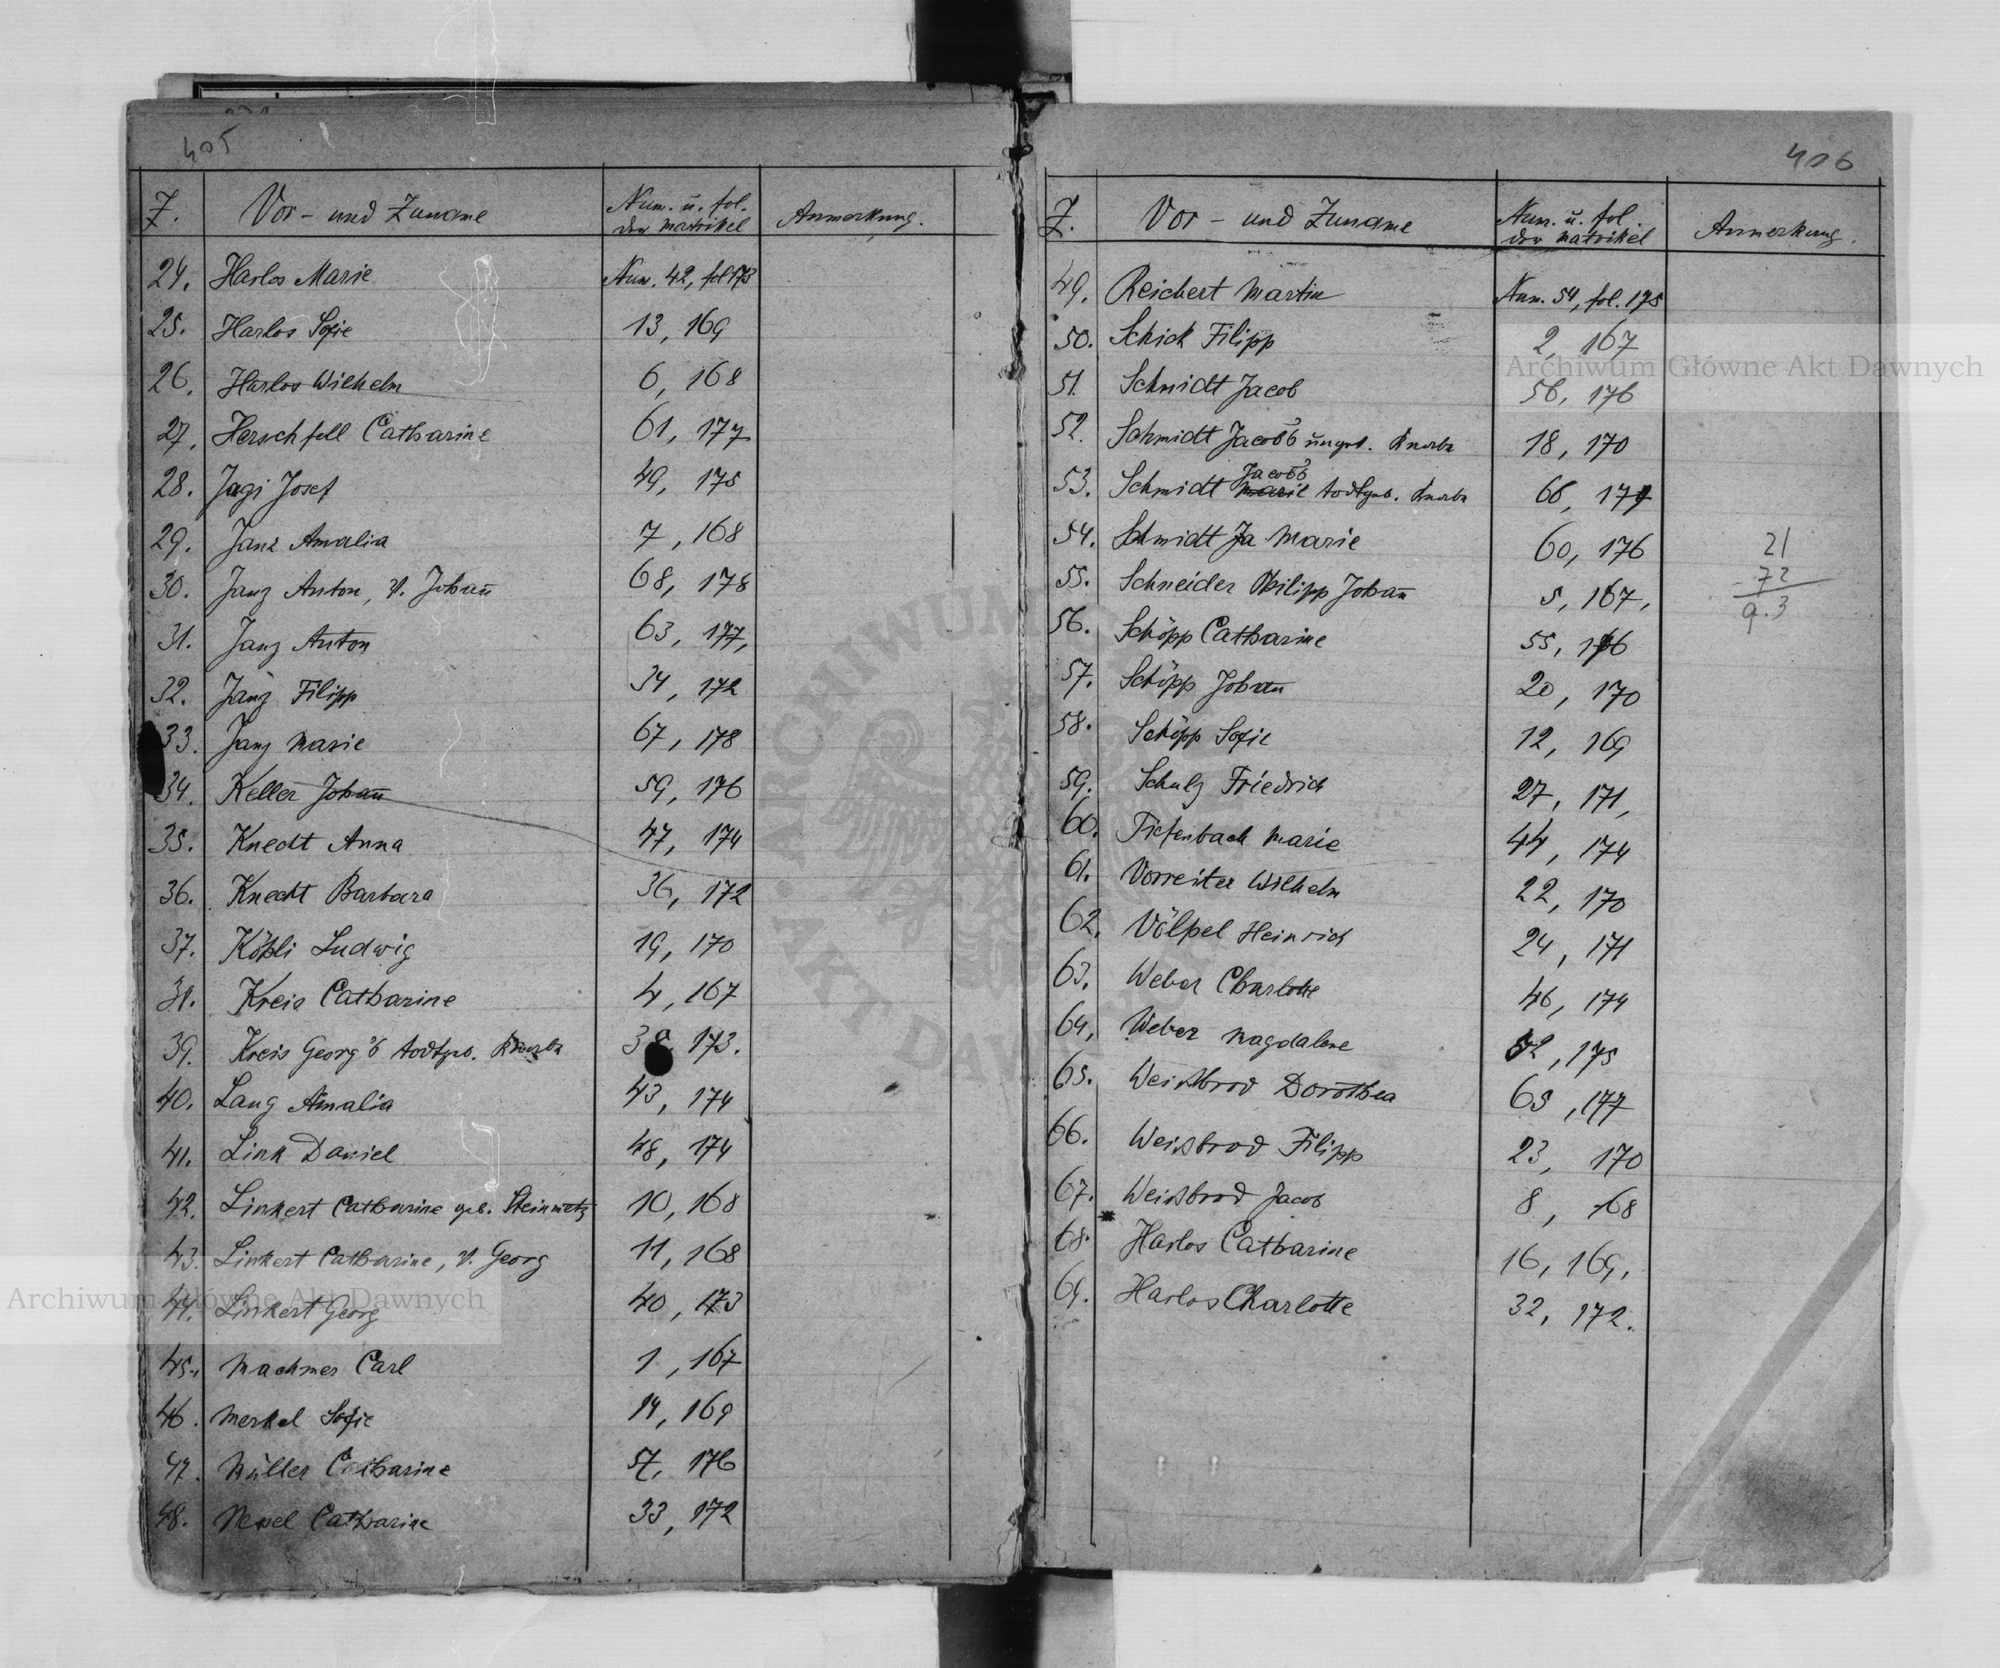 405
Z. Vor- und Zuname Num. u. fol. der Matrikel Anmerkung.
24. Harlos Marie Num. 42, fol 173
25. Harlos Sofie 13, 169
26. Harlos Wilhelm 6, 168
27. Herschfell Catharine 61, 177
28. Jagi Josef 49, 175
29. Janz Amalia 7, 168
30. Janz Anton, V. Johañ 68, 178
31. Janz Anton 63, 177,
32. Janz Filipp 34, 172
33. Janz Marie 67, 178
34. Keller Johañ 59, 176
35. Knecht Anna 47, 174
36. Knecht Barbara 36, 172
37. Ludwig 19, 170
38. Kreis Catharine 4, 167
39. Kreis Georg's todtgeb. Knabe 38, 173.
40. Lang Amalia 43, 174
41. Link Daniel 48, 174
42. Linkert Catharine geb. Steinmetz 10, 168
43. Linkert Catharine, V. Georg 11, 168
44. Linkert Georg 40, 173
45. Machmer Carl 1, 167
46. Merkel Sofie 14, 169
47. Müller Catharine 57, 176
48. Catharine 33, 172
406
Z. Vor- und Zuname Num. u. fol. der Matrikel Anmerkung.
49. Reichert Martin Num. 54, fol. 175
50. Schick Filipp 2, 167
51. Schmidt Jacob 56, 176
52. Schmidt Jacob's ungt. Knabe 18, 170
53. Schmidt Marie Jacob's todtgeb. Knabe 66, 177
54. Schmidt Ja Marie 60, 176
55. Schneider Philipp Johañ 5, 167,
56. Schöpp Catharine 55, 176
57. Schöpp Johañ 20, 170
58. Schöpp Sofie 12, 169
59. Schulz Friedrich 27, 171,
60. Tiefenbach Marie 44, 174
61. Vorreiter Wilhelm 22, 170
62. Völpel Heinrich 24, 171
63. Weber Charlotte 46, 174
64. Weber Magdalene 52, 175
65. Weißbrod Dorothea 65, 177
66. Weißbrod Filipp 23, 170
67. Weißbrod Jacob 8, 168
68. Harlos Catharine 16, 169,
69. Harlos Charlotte 32, 172.
21
72
9.3
Archiwum Główne Akt Dawnych
Archiwum Główne Akt Dawnych